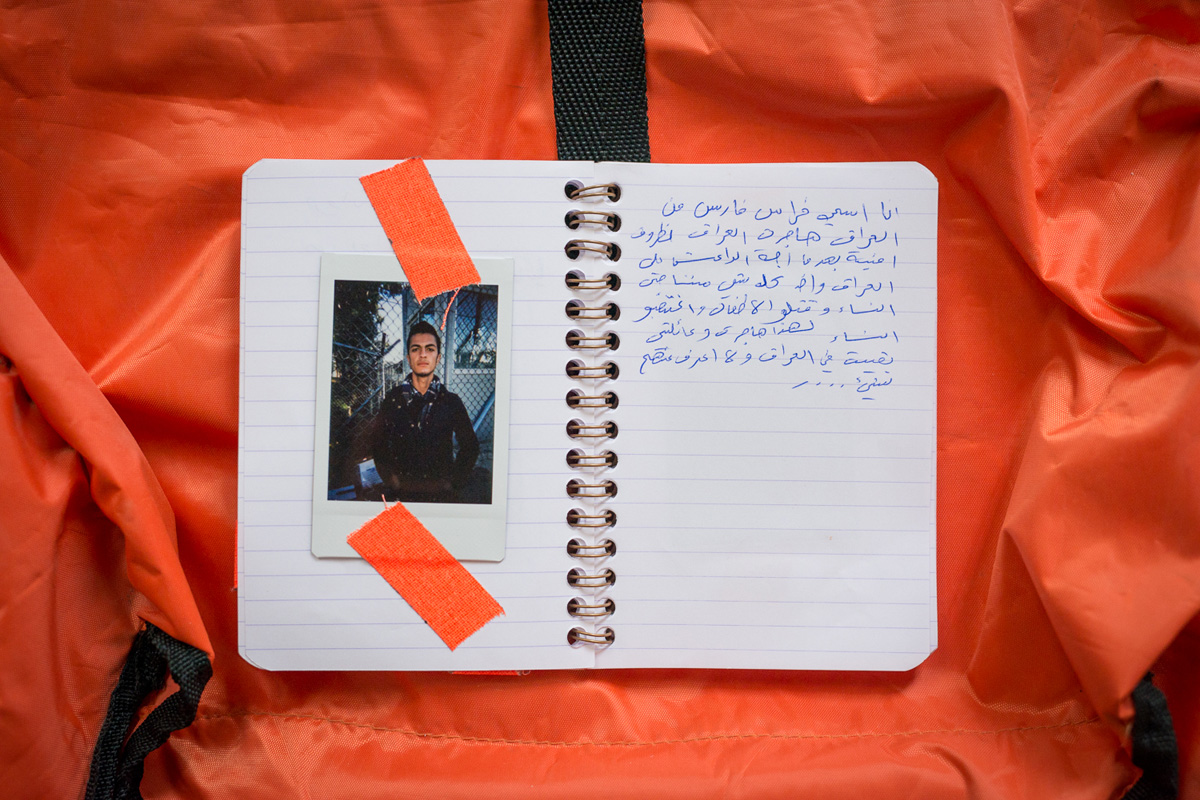 انا اسمي فراس فارس من
العراق هاجرت العراق لظروف
امنية بعدما أجة الداعش دخل
العراق واخذ كلشي مننا حتى
النساء وقتلو الاطفال واغتصبو
النساء لهذا هاجرت وعائلتي
بقيية في العراق ولا اعرف عنهم
شيئ ....